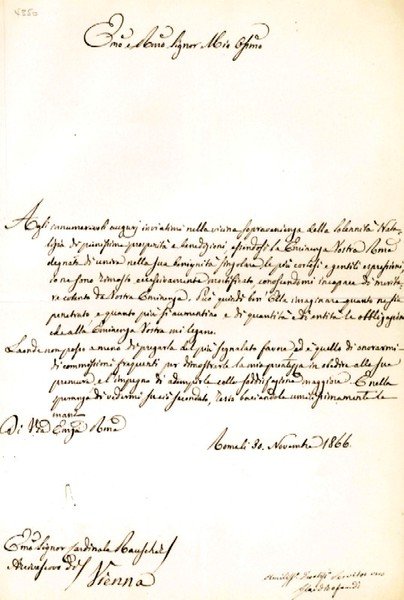 Emo e Rmo Signor Mio Ossmo
Agli innumerevoli augurj inviatimi nella vicina sopravvenienza della Solennità Nata-
lizia di pienissime prosperità e benedizioni essendosi la Eminenza Vostra Rma
degnata di unire nella sua benignità singolare le più cortesi e gentili espressioni,
io ne sono rimasto eccessivamente mortificato conoscendomi incapace di merita-
re cotanto da Vostra Eminenza. Può quindi ben Ella immaginare quanto ne sia
penetrato e quanto più si aumentino e di quantità e di entità le obbligazioni
che alla Eminenza Vostra mi legano.
Laonde non posso a meno di pregarla del più segnalato favore ed è quello di onorarmi
di comandi frequenti per dimostrarle la mia prontezza in obedire alle sue
premure e l'impegno di adempirle colla soddisfazione maggiore. E nella
speranza di vedermi in ciò secondato, resto baciandole umilissimamente le
mani
Di Vra Emza Rma
Roma li 30. Novembre 1866.
Emo Signor Cardinale Rauscher
Arcivescovo di
Vienna
Servitor vero